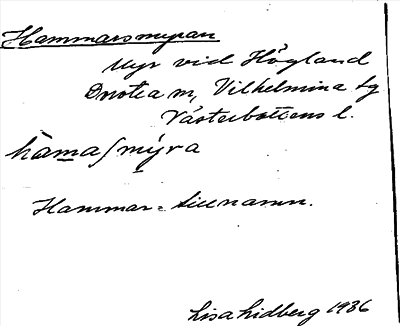 Hammarsmyran
Myr vid Högland
Dorotea m, Vilhelmina tg
Västerbottens l.
hàma/mỳra
Hammar = tillnamn.
Lisa Lidberg 1936